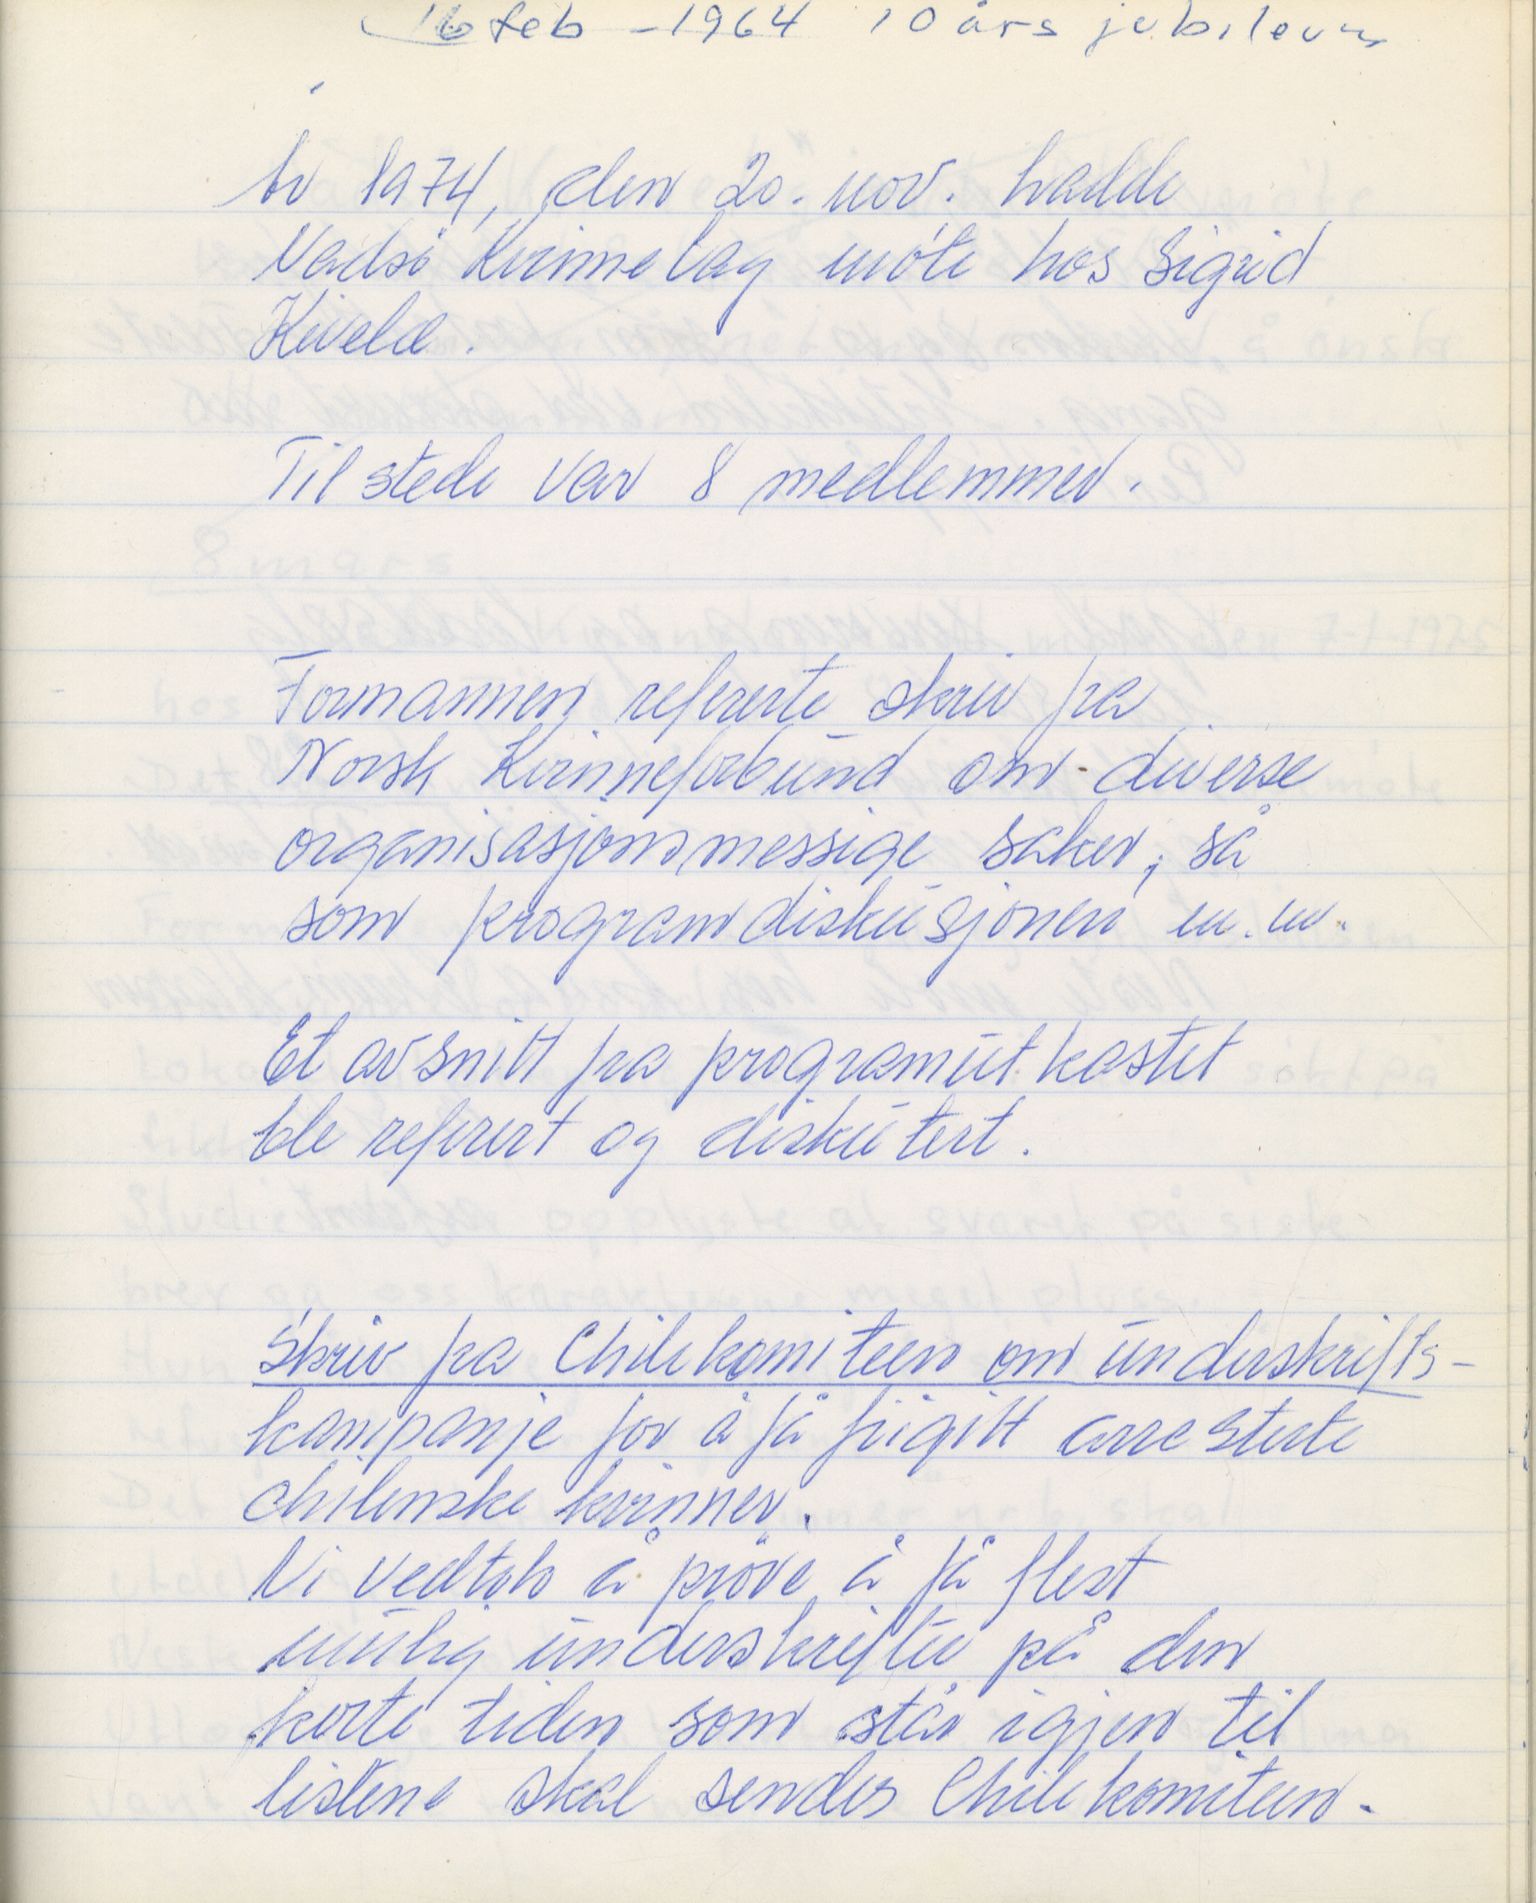 16 feb - 1964 10 års jubileum
År 1974, den 20. nov. hadde
Vadsö Kvinnelag möte hos Sigrid
Kivelæ.
Til stede var 8 medlemmer.
Formannen refererte skriv fra
Norsk Kvinneforbund om diverse
organisasjonsmessige saker, så
som programdiskusjonen m.m.
Et avsnitt fra programutkastet
ble referert og diskutert.
Skriv fra Chilekomiteen om underskrifts-
kampanje for å få frigitt arresterte
chilenske kvinner.
Vi vedtok å pröve å få flest
mulig underskrifter på den
korte tiden som står igjen til
listene skal sendes Chilekomiteen.